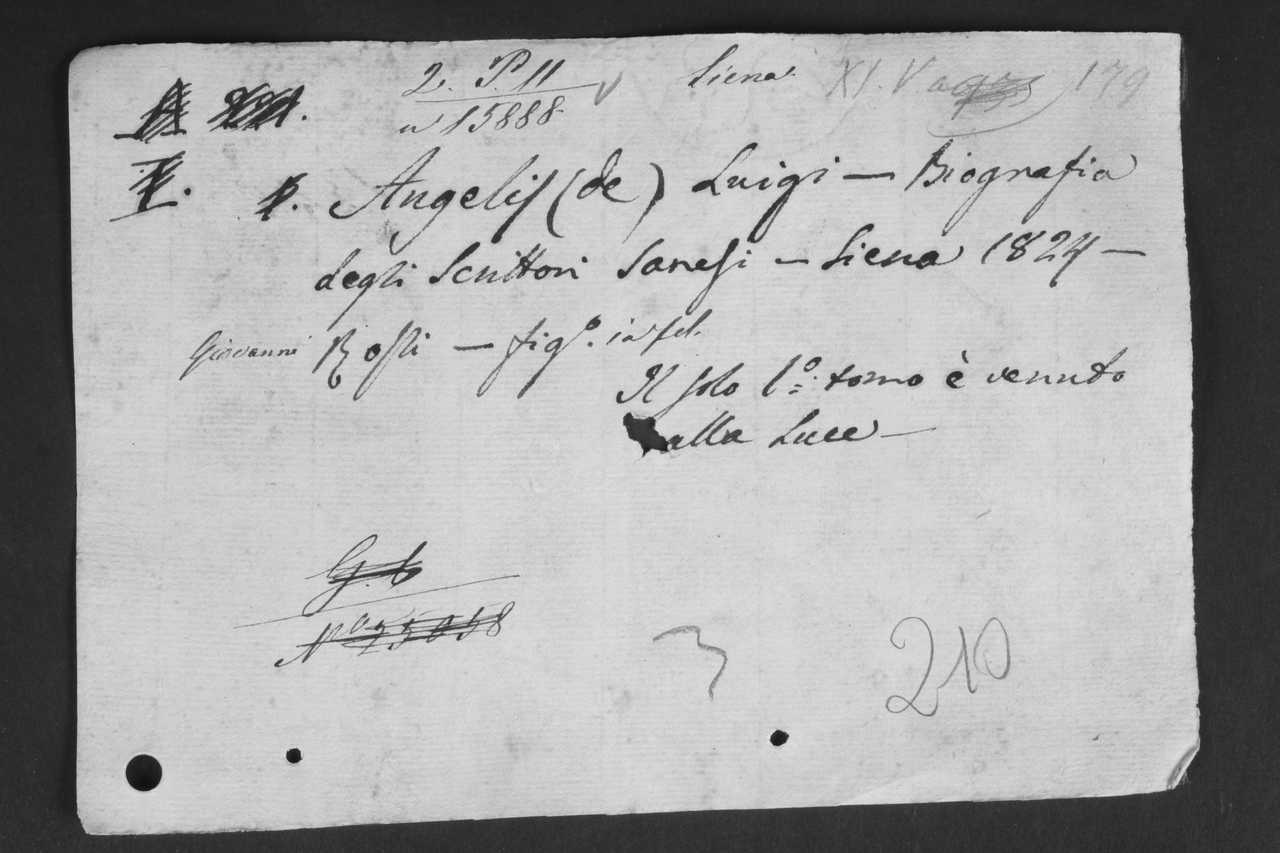 2. P. 11 Siena XI. V 179
n° 15888
Angelis (de) Luigi — Biografia
degli Scrittori Sanesi — Siena 1824 —
Giovanni Rossi — fig.° in fol.
Il solo 1.° tomo è venuto
alla Luce —
G. 6
N° 25058
3 210